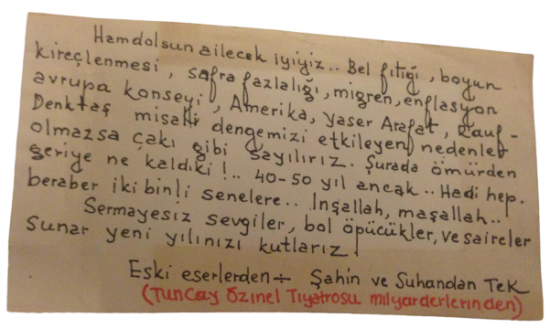 Hamdolsun ailecek iyiyiz.. Bel fıtığı, boyun
kireçlenmesi, safra fazlalığı, migren, enflasyon
avrupa konseyi, Amerika, Yaser Arafat, Rauf-
Denktaş misalli dengemizi etkileyen nedenler
olmazsa çakı gibi sayılırız. Şurada ömürden
geriye ne kaldıki!.. 40-50 yıl ancak.. Hadi hep.
beraber iki binli senelere.. İnşallah, maşallah..
Sermayesiz sevgiler, bol öpücükler, vesaireler
sunar yeni yılınızı kutlarız.
Eski eserlerden ÷ Şahin ve Suhandan Tek
(Tuncay Özinel Tiyatrosu milyarderlerinden)